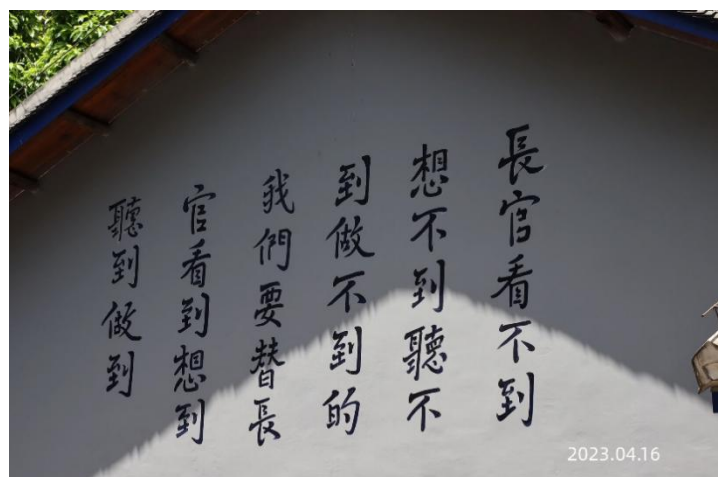 長官看不到
想不到聽不
到做不到的
我們要替長
官看到想到
聽到做到
2023.04.16